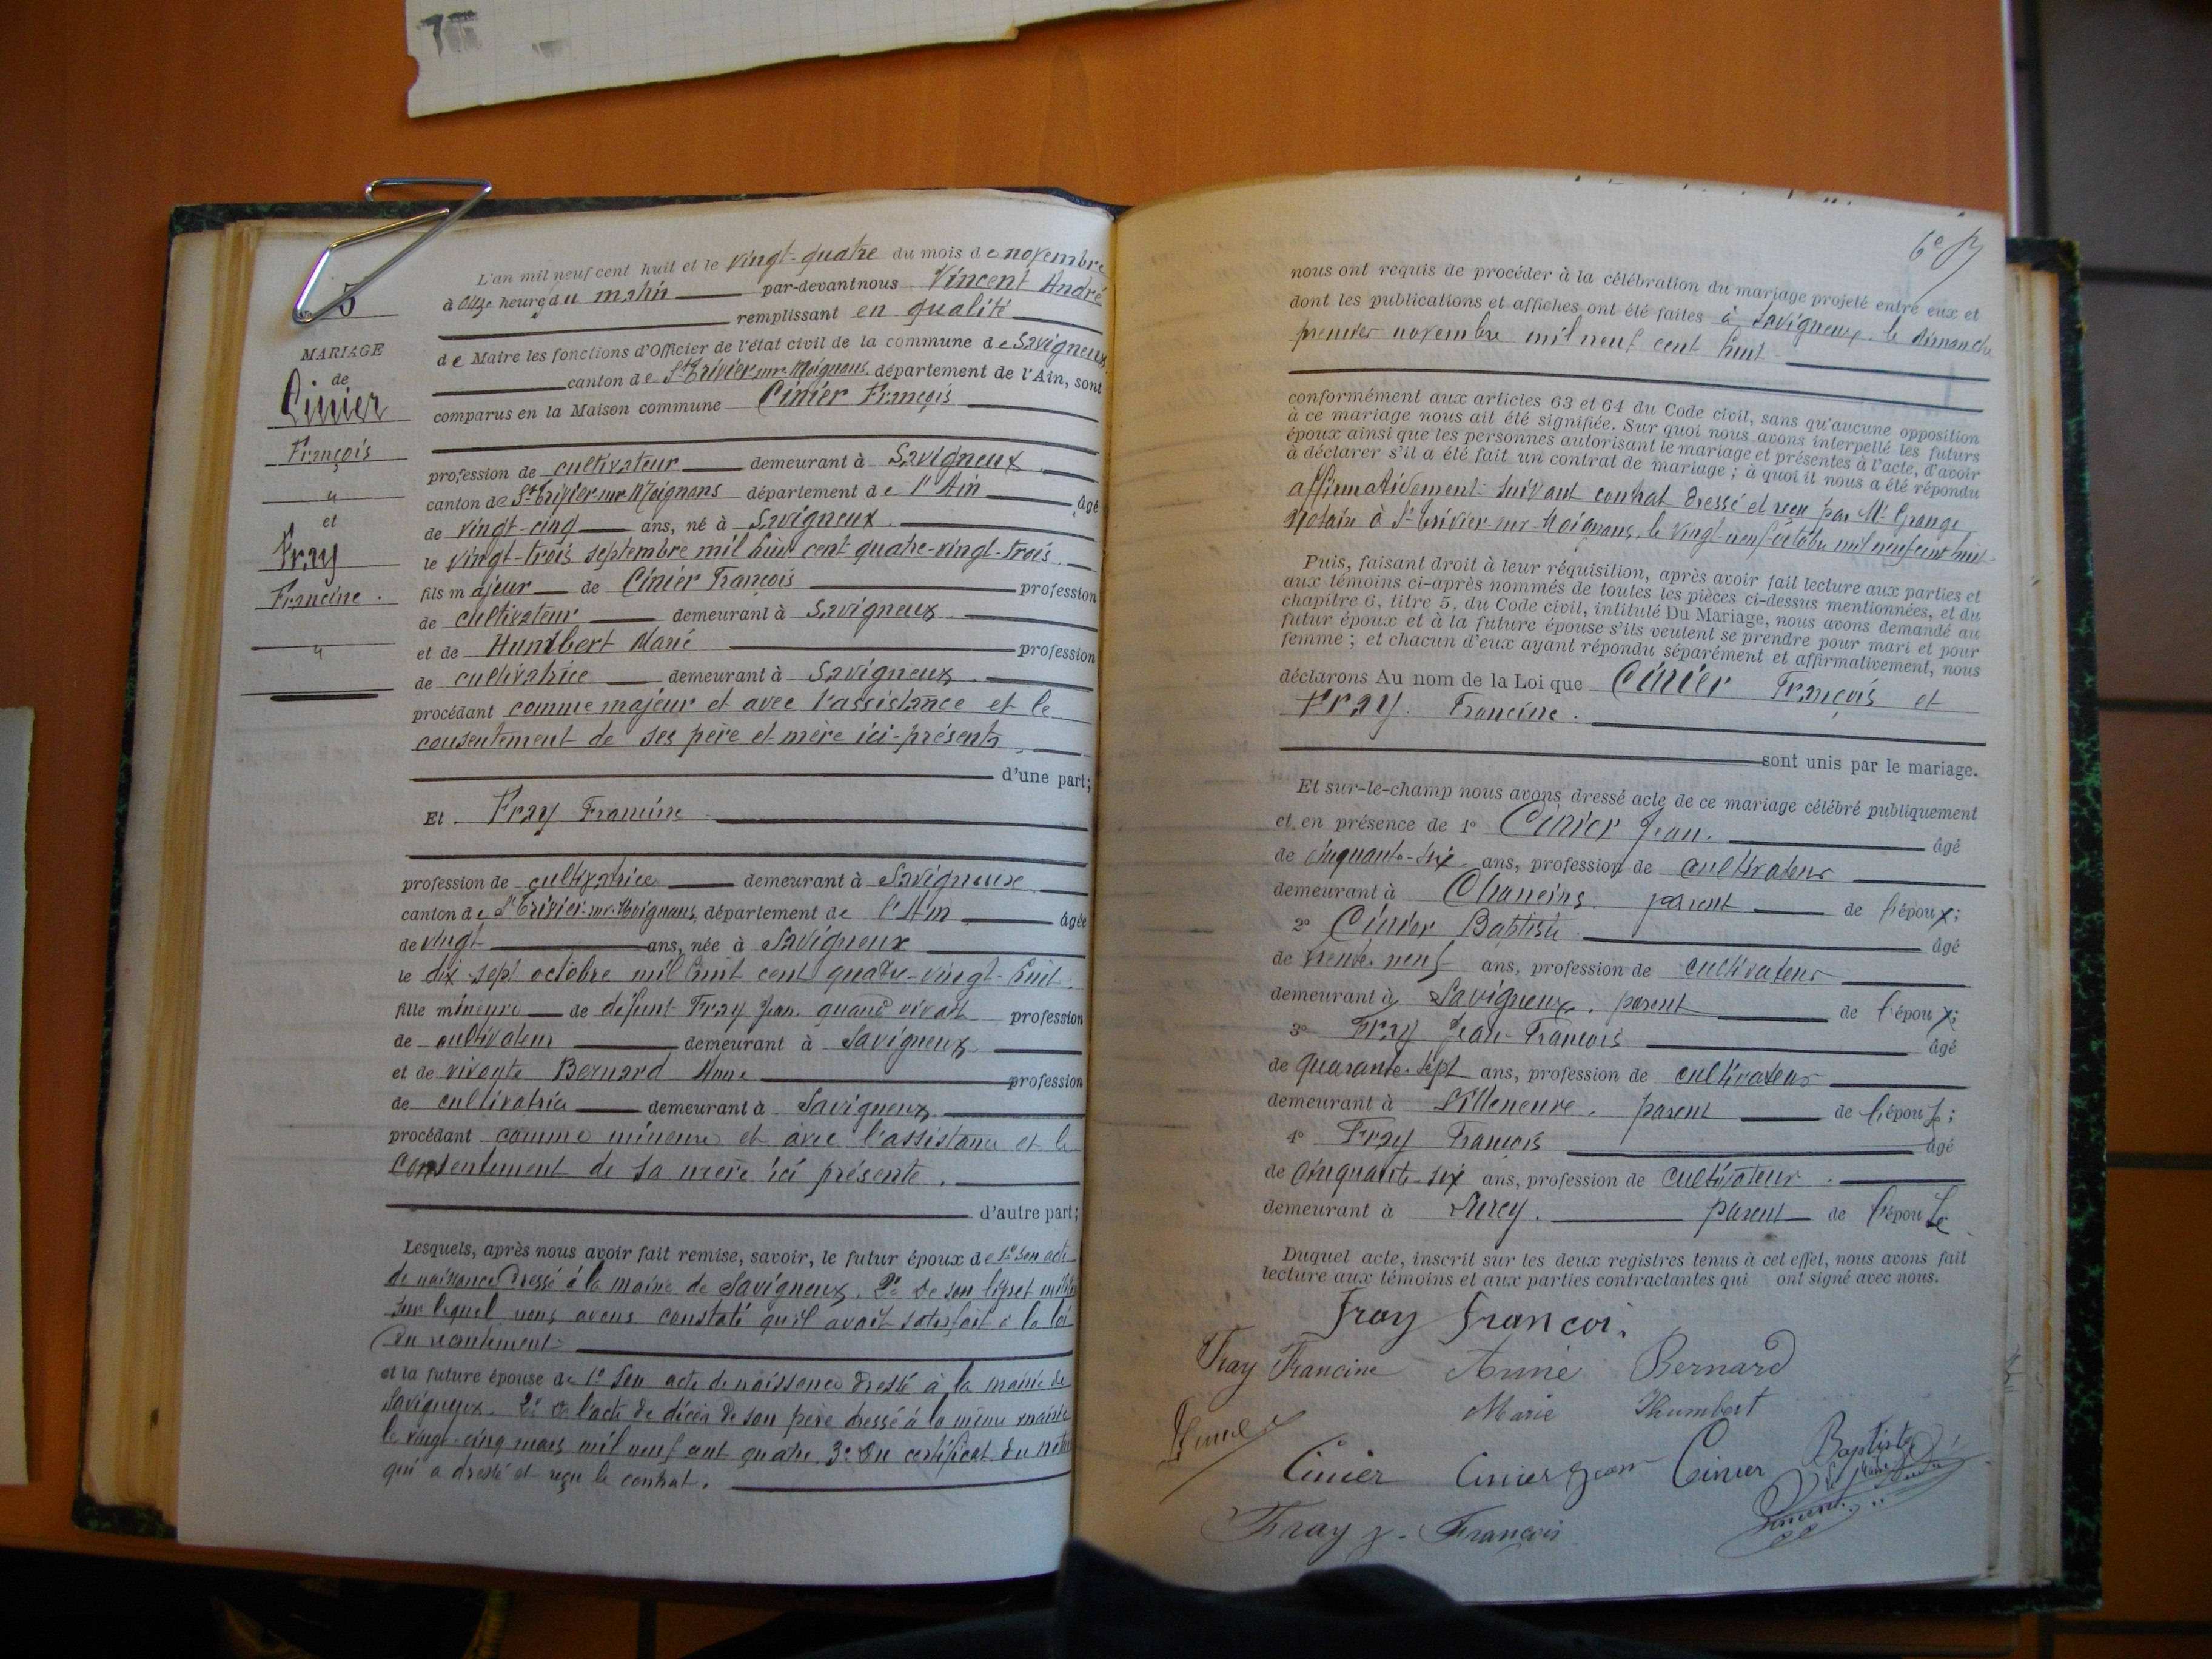 5
MARIAGE
de
Cinier
François
"
et
Fray
Francine .
"
L'an mil neuf cent huit et le vingt-quatre du mois de novembre
à onze heures du matin par-devant nous Vincent André
remplissant en qualité
de Maire les fonctions d'Officier de l'état civil de la commune de Savigneux
canton de St Trivier-sur-Moignans, département de l'Ain, sont
comparus en la Maison commune Cinier François
profession de cultivateur demeurant à Savigneux
canton de St Trivier-sur-Moignans département de l'Ain âgé
de vingt-cinq ans, né à Savigneux .
le vingt-trois septembre mil huit cent quatre-vingt-trois .
fils majeur de Cinier François profession
de cultivateur demeurant à Savigneux
et de Humbert Marie profession
de cultivatrice demeurant à Savigneux .
procédant comme majeur et avec l'assistance et le
consentement de ses père et mère ici-présents
d'une part;
Et Fray Francine
profession de cultivatrice demeurant à Savigneux
canton de St Trivier-sur-Moignans, département de l'Ain âgée
de vingt ans, née à Savigneux
le dix-sept octobre mil huit cent quatre-vingt-huit.
fille mineure de défunt Fray Jean quand vivait profession
de cultivateur demeurant à Savigneux
et de vivante Bernard Anne profession
de cultivatrice demeurant à Savigneux
procédant comme mineure et avec l'assistance et le
consentement de sa mère ici présente .
d'autre part;
Lesquels, après nous avoir fait remise, savoir, le futur époux de 1° son acte
de naissance dressé à la mairie de Savigneux. 2° de son livret
sur lequel nous avons constaté qu'il avait satisfait à la loi
du recrutement
et la future épouse de 1° son acte de naissance dressé à la mairie de
Savigneux. 2° de l'acte de décès de son père dressé à la même mairie
le vingt-cinq mars mil neuf cent quatre. 3° du certificat du
qui a dressé et reçu le contrat.
nous ont requis de procéder à la célébration du mariage projeté entre eux et
dont les publications et affiches ont été faites à Savigneux, le dimanche
premier novembre mil neuf cent huit
conformément aux articles 63 et 64 du Code civil, sans qu'aucune opposition
à ce mariage nous ait été signifiée. Sur quoi nous avons interpellé les futurs
époux ainsi que les personnes autorisant le mariage et présentes à l'acte, d'avoir
à déclarer s'il a été fait un contrat de mariage ; à quoi il nous a été répondu
affirmativement suivant contrat dressé et reçu par Me Grange
notaire à St Trivier-sur-Moignans, le vingt-neuf octobre mil neuf cent huit.
Puis, faisant droit à leur réquisition, après avoir fait lecture aux parties et
aux témoins ci-après nommés de toutes les pièces ci-dessus mentionnées, et du
chapitre 6, titre 5, du Code civil, intitulé Du Mariage, nous avons demandé au
futur époux et à la future épouse s'ils veulent se prendre pour mari et pour
femme ; et chacun d'eux ayant répondu séparément et affirmativement, nous
déclarons Au nom de la Loi que Cinier François et
Fray Francine .
sont unis par le mariage.
Et sur-le-champ nous avons dressé acte de ce mariage célébré publiquement
et en présence de 1° Cinier Jean. âgé
de cinquante-six ans, profession de cultivateur
demeurant à Chaneins. parent de l'époux;
2° Cinier Baptiste âgé
de trente-neuf ans, profession de cultivateur
demeurant à Savigneux. parent de l'époux;
3° Fray Jean-François âgé
de quarante-sept ans, profession de cultivateur
demeurant à Villeneuve. parent de l'épouse;
4° Fray François âgé
de cinquante-six ans, profession de cultivateur .
demeurant à Lurcy. parent de l'épouse
Duquel acte, inscrit sur les deux registres tenus à cet effet, nous avons fait
lecture aux témoins et aux parties contractantes qui ont signé avec nous.
Fray Francoi.
Fray Francine Annie Bernard
Marie Humbert
Cinier Cinier Jean Cinier Baptiste
Fray J. François